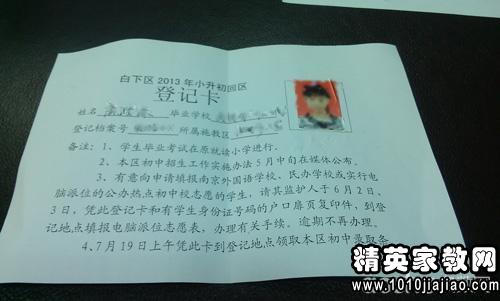 白下区2013年小升初回区
登记卡
姓名 毕业学校
登记档案号 所属施教区
备注：1、学生毕业考试在原就读小学进行。
2、本区初中招生工作实施办法5月中旬在媒体公布。
3、有意向申请填报南京外国语学校、民办学校或实行电
脑派位的公办热点初中校志愿的学生，请其监护人于6月2日、
3日，凭此登记卡和有学生身份证号码的户口扉页复印件，到登
记地点填报电脑派位志愿表，办理有关手续。逾期不再办理。
4、7月19日上午凭此卡到登记地点领取本区初中录取条
精英家教网
www.1010jiajiao.com